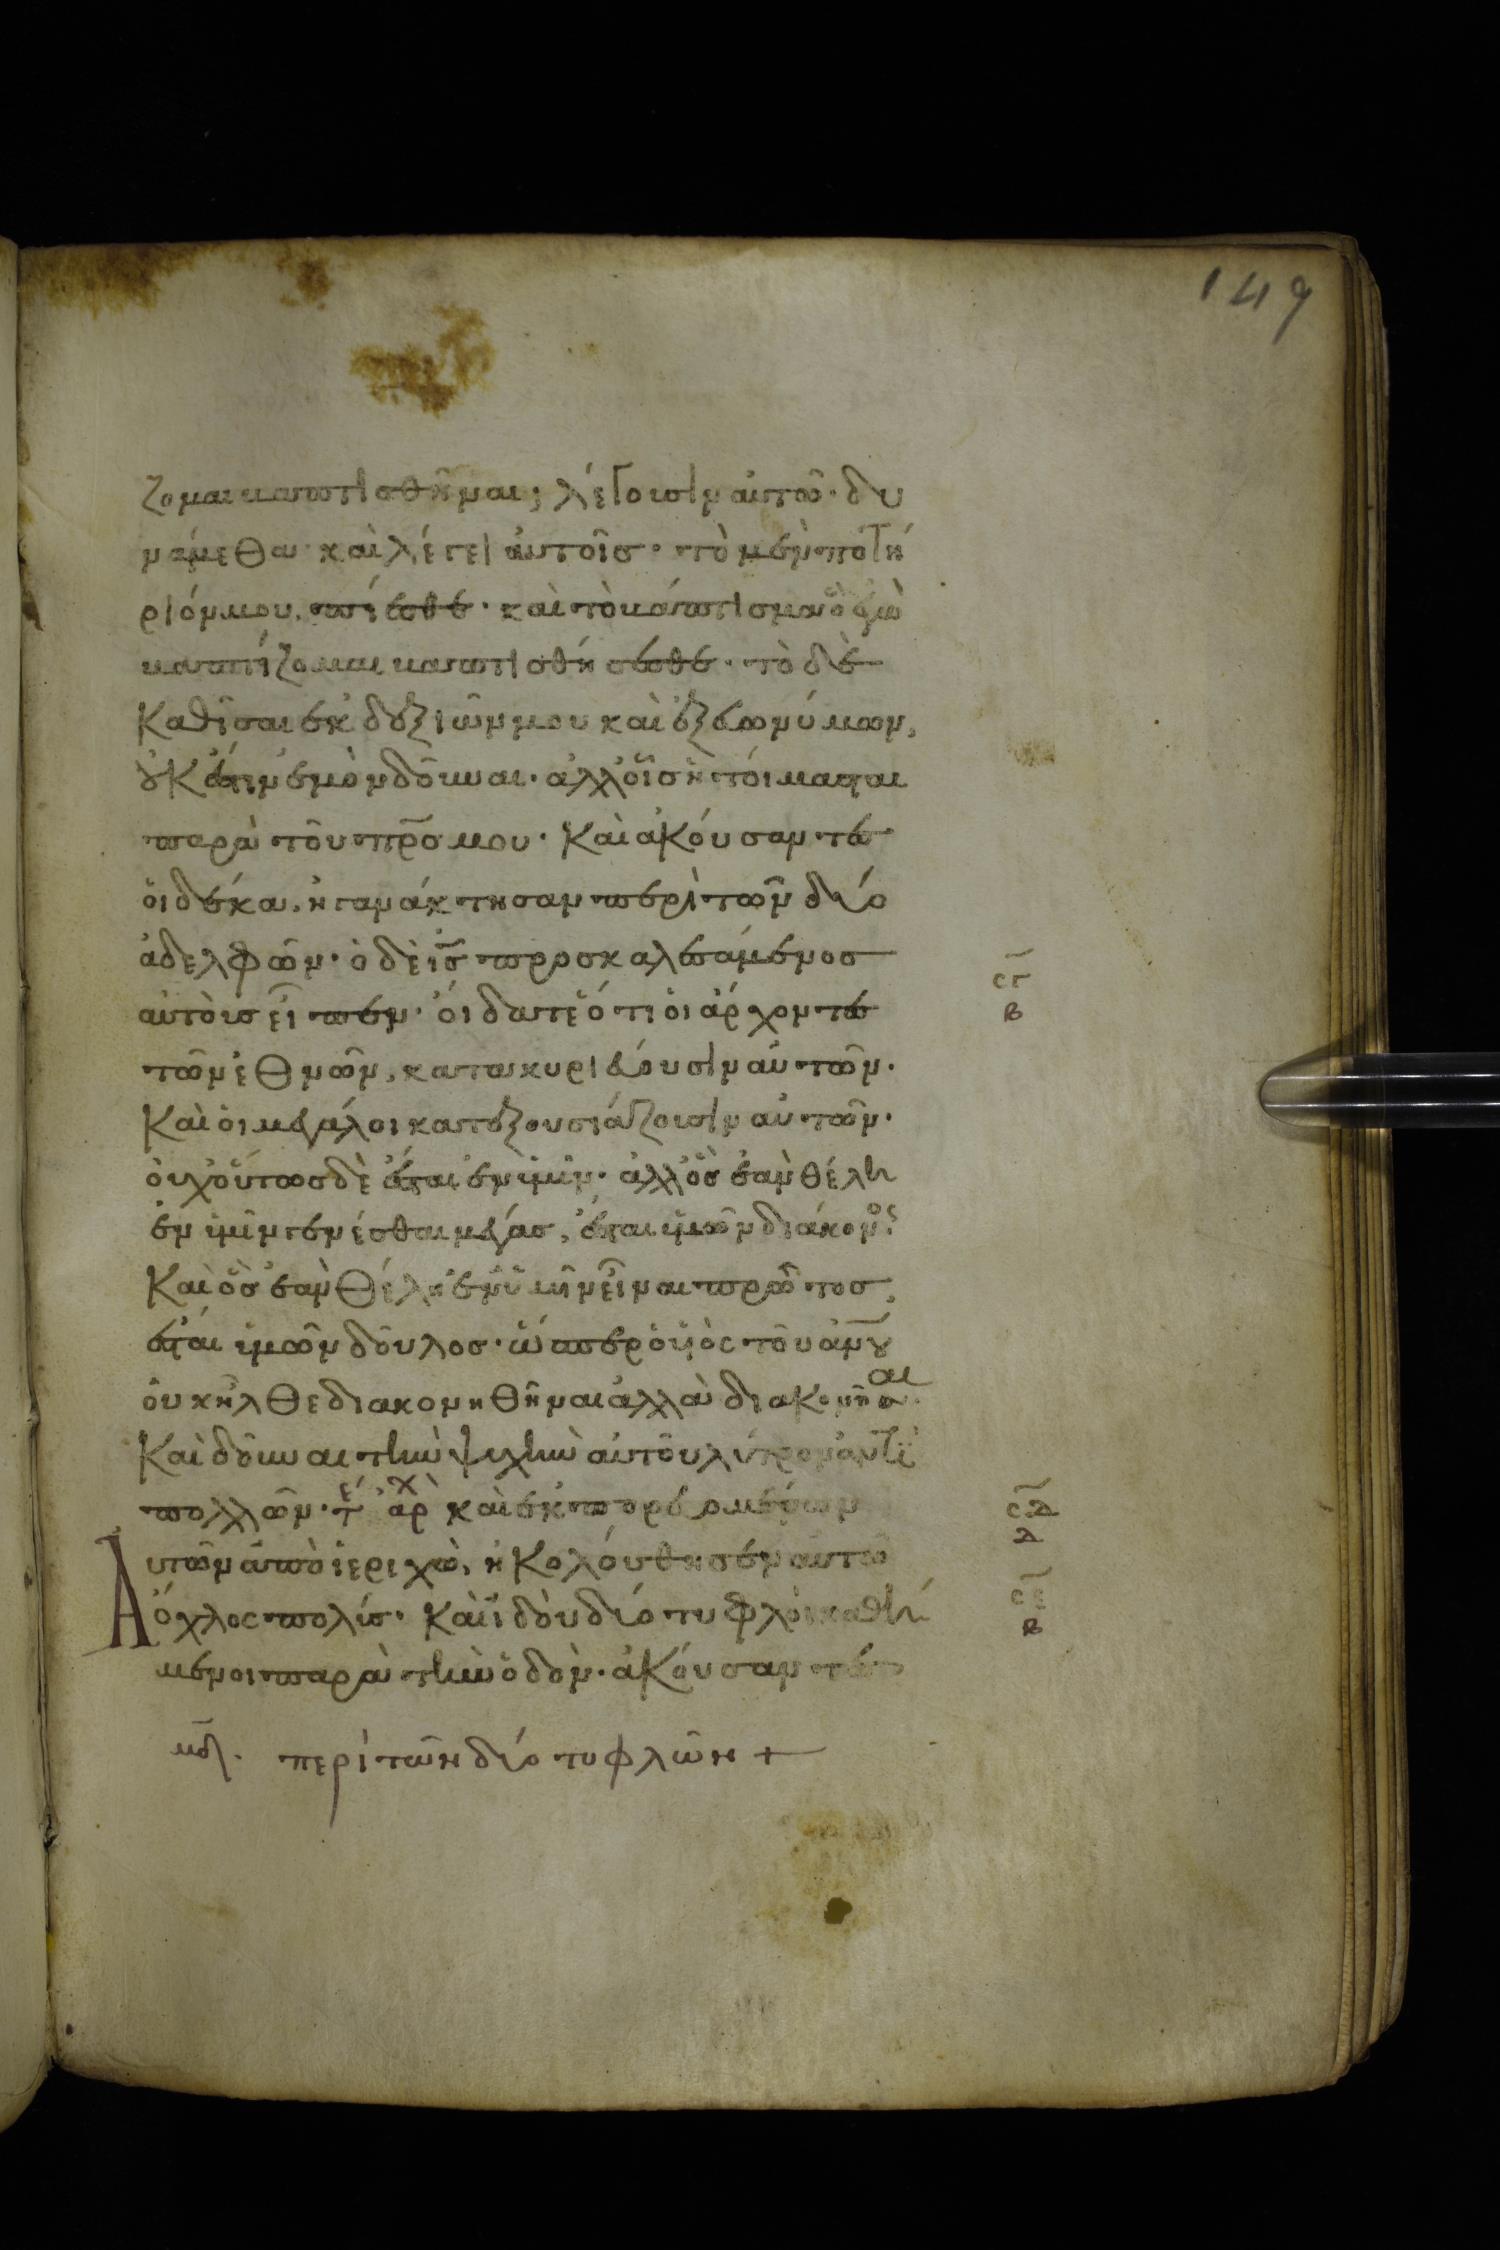 149
ζομαι βαπτισθῆναι; λέγουσιν αὐτῶ· δυ
νάμεθα· καὶ λέγει αὐτοῖσ· τὸ μὲν ποτή
ριόν μου, πίεσθε· καὶ τὸ βάπτισμα ὃ ἐγὼ
βαπτίζομαι βαπτισθήσεσθε· τὸ δὲ
καθῖσαι ἐκ δεξιῶν μου καὶ ἐξ εὐωνύμων,
οὐκ ἔστιν ἐμὸν δοῦναι· ἀλλ' οἷσ ἡτοίμασται
παρὰ τοῦ πρ̅σ μου· καὶ ἀκούσαντεσ
οἱ δέκα, ἠγανάκτησαν περὶ τῶν δύο
ἀδελφῶν· ὁ δὲ ι̅σ προσκαλεσάμενοσ
αὐτοὺσ εἶπεν· οἴδατε ὅτι οἱ ἄρχοντεσ
τῶν ἐθνῶν, κατακυριεύουσιν αὐτῶν·
καὶ οἱ μεγάλοι κατεξουσιάζουσιν αὐτῶν·
οὐχ οὕτωσ δὲ ἔσται ἐν ὑμῖν· ἀλλ' ὃσ ἐὰν θέλη
ἐν ὑμῖν γενέσθαι μέγασ, ἔσται ὑμῶν διάκονος·
καὶ ὃσ ἐὰν θέλη ἐν ὑμῖν εἶναι πρῶτοσ,
ἔσται ὑμῶν δοῦλοσ· ὥσπερ ὁ υἱὸς τοῦ ἀν̅ου
οὐκ ἦλθε διακονηθῆναι ἀλλὰ διακονῆσαι·
καὶ δοῦναι τὴν ψυχὴν αὐτοῦ λύτρον ἀντὶ
πολλῶν· τέ ἀρχ καὶ ἐκπορευομένων
αυτῶν ἀπὸ ἱεριχὼ, ἠκολούθησεν αὐτῶ
ὄχλος πολύσ· καὶ ἰδοὺ δύο τυφλοὶ καθή
μενοι παρὰ τὴν ὁδὸν· ἀκούσαντεσ
περὶ τῶν δύο τυφλῶν +
σγ̅
β
σδ̅
δ
σε̅
β